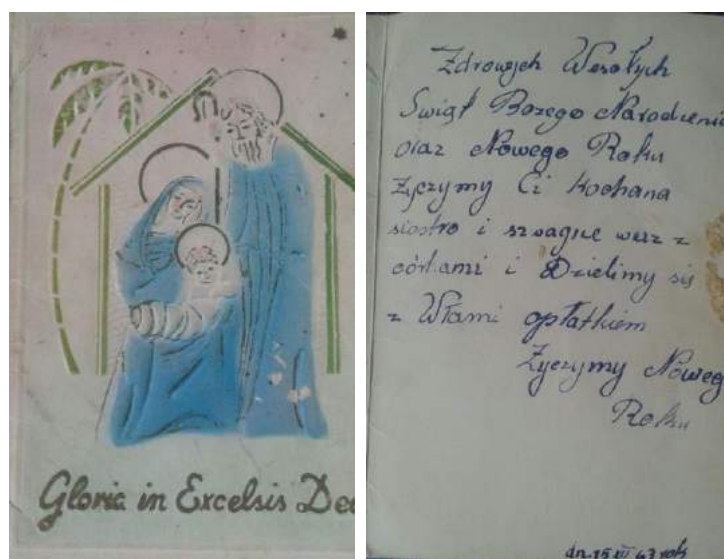 Gloria in Excelsis Deo
Zdrowych Wesołych
Świąt Bożego Narodzenia
oraz Nowego Roku
Życzymy Ci Kochana
siostro i szwagrze wraz z
córkami i Dzielimy się
z Wami opłatkiem
Życzymy Nowego
Roku
dn. 15 43 rok